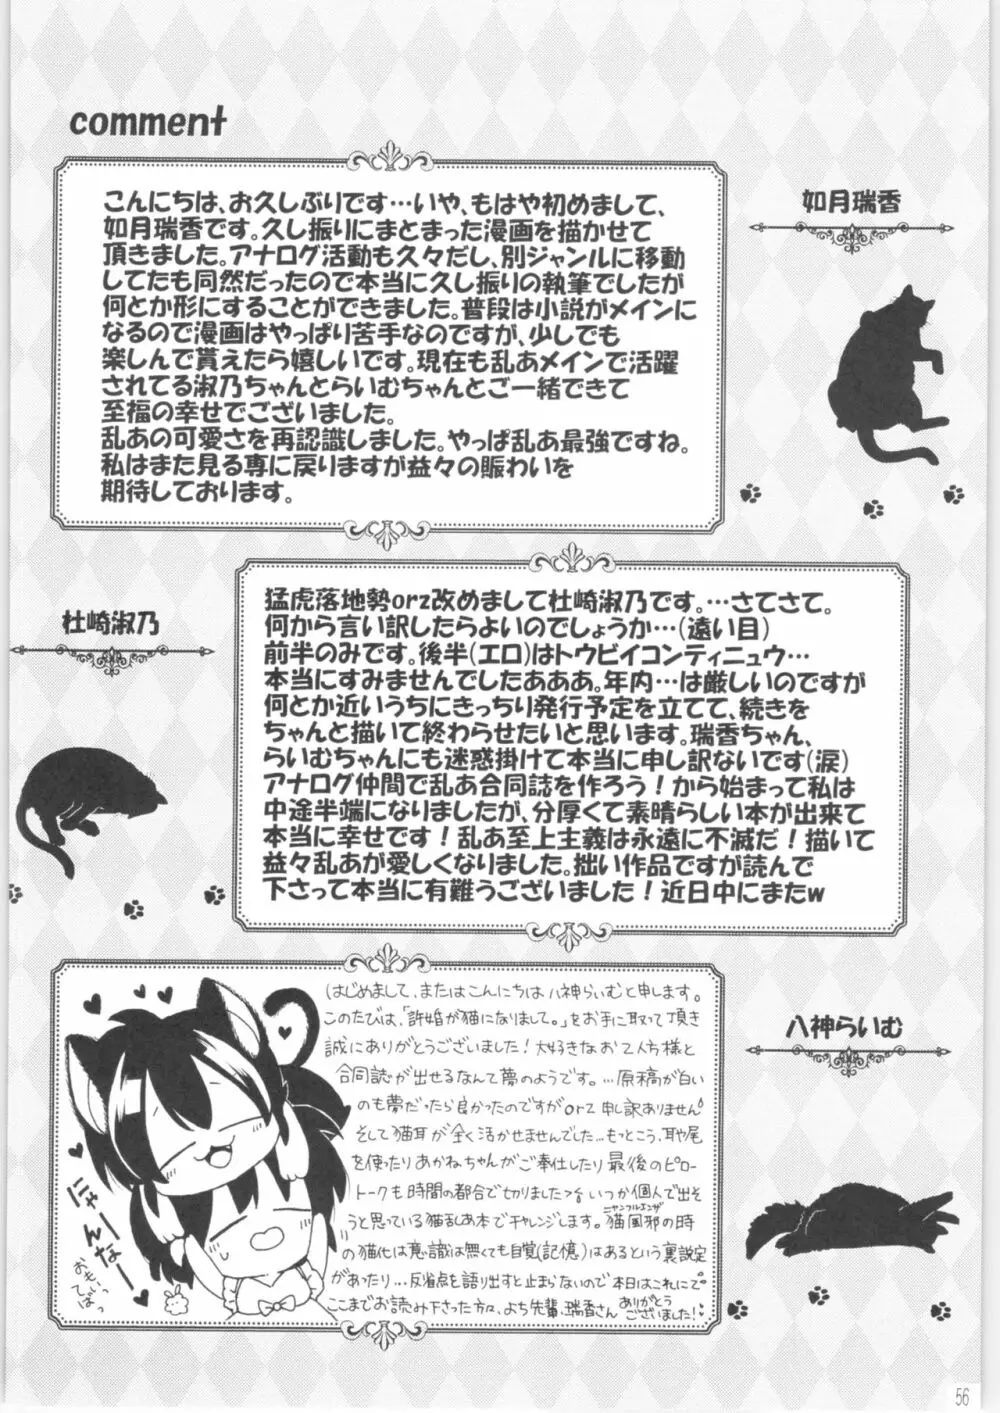 comment
如月瑞香
こんにちは、お久しぶりです…いや、もはや初めまして、
如月瑞香です。久し振りにまとまった漫画を描かせて
頂きました。アナログ活動も久々だし、別ジャンルに移動
してたも同然だったので本当に久し振りの執筆でしたが
何とか形にすることができました。普段は小説がメインに
なるので漫画はやっぱり苦手なのですが、少しでも
楽しんで貰えたら嬉しいです。現在も乱あメインで活躍
されてる淑乃ちゃんとらいむちゃんとご一緒できて
至福の幸せでございました。
乱あの可愛さを再認識しました。やっぱ乱あ最強ですね。
私はまた見る専に戻りますが益々の賑わいを
期待しております。
杜崎淑乃
猛虎落地勢orz改めまして杜崎淑乃です。…さてさて。
何から言い訳したらよいのでしょうか…(遠い目)
前半のみです。後半(エロ)はトゥビイコンティニュウ…
本当にすみませんでしたあああ。年内…は厳しいのですが
何とか近いうちにきっちり発行予定を立てて、続きを
ちゃんと描いて終わらせたいと思います。瑞香ちゃん、
らいむちゃんにも迷惑掛けて本当に申し訳ないです(涙)
アナログ仲間で乱あ合同誌を作ろう!から始まって私は
中途半端になりましたが、分厚くて素晴らしい本が出来て
本当に幸せです!乱あ至上主義は永遠に不滅だ!描いて
益々乱あが愛しくなりました。拙い作品ですが読んで
下さって本当に有難うございました!近日中にまたw
八神らいむ
はじめまして、またはこんにちは八神らいむと申します。
このたびは、「許婚が猫になりまして。」をお手に取って頂き
誠にありがとうございました!大好きなお二人方様と
合同誌が出せるなんて夢のようです。…原稿が白い
のも夢だったら良かったのですがorz申し訳ありません
そして猫耳が全く活かせませんでした…もっとこう、耳や尾
を使ったりあかねちゃんがご奉仕したり最後のピロー
トークも時間の都合で切りました いつか個人で出そ
うと思っている猫乱あ本でチャレンジします。猫風邪の時
ニャンフルエンザ
の猫化は意識は無くても自覚(記憶)はあるという裏設定
があったり…反省点を語り出すと止まらないので本日はこれにて
ここまでお読み下さった方々、よち先輩、瑞香さん ありがとう
ございました!
にゃーんなー
おもいってばっ
56